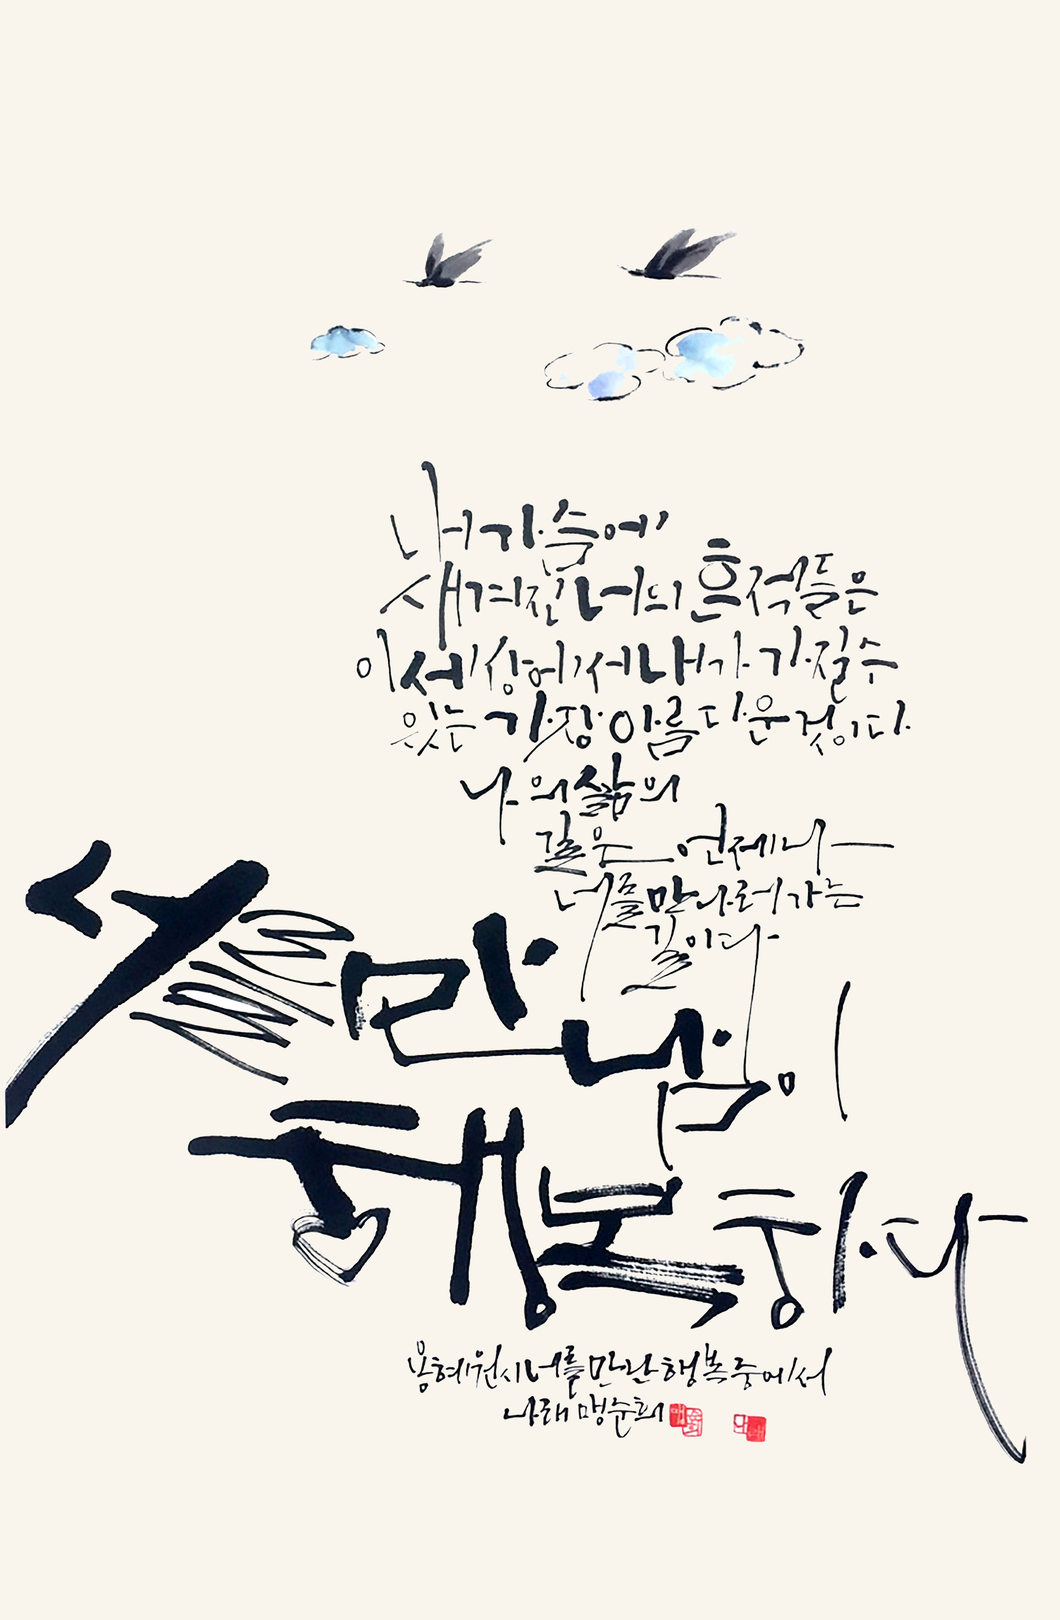 내 가슴에
새겨진 너의 흔적들은
이 세상에서 내가 가질 수
있는 가장 아름다운 것이다
나의 삶의
길은 언제나
너를 만나러 가는
길이다
만남이
행복하다
용혜원 시 너를 만난 행복 중에서
나래 맹순희